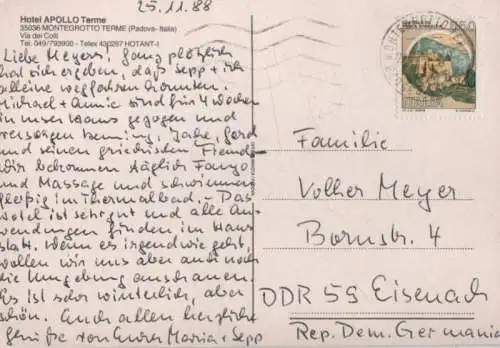 25.11.88
Hotel APOLLO Terme
35036 MONTEGROTTO TERME (Padova-Italia)
Via dei Colli
Tel. 049/793900 - Telex 430267 HOTANT-I
Liebe Meyers! Ganz plötzlich
hat sich ergeben, daß Sepp + ich
alleine wegfahren konnten.
Michael + Annie sind für 4 Wochen
in unser Haus gezogen und
versorgen Henning, Jake, Gerd
und seinen griechischen Freund.
Wir bekommen täglich Fango
und Massage und schwimmen
fleißig im Thermalbad. - Das
Hotel ist sehr gut und alle An-
wendungen finden im Haus
statt. Wenn es irgendwie geht,
wollen wir uns aber auch noch
die Umgebung anschauen.
Es ist sehr winterlich, aber
schön. Euch allen herzliche
Grüße von Eurer Maria + Sepp
650
Familie
Volker Meyer
Bornstr. 4
DDR 59 Eisenach
Rep. Dem. Germania